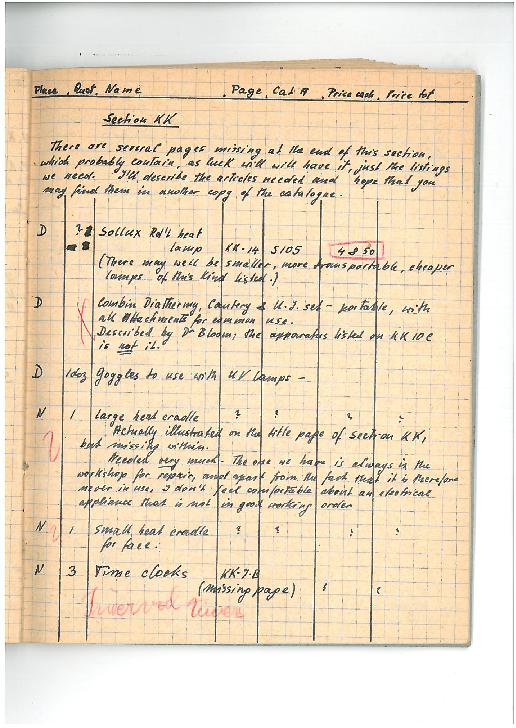 Place Quot. Name Page Cat № Price each Price tot
Section KK
There are several pages missing at the end of this section,
which probably contain, as luck will will have it, just the listings
we need. I'll describe the articles needed and hope that you
may find them in another copy of the catalogue.
D ? Sollux Rd't heat
lamp KK-14 S105 48 50
(There may well be smaller, more transportable, cheaper
lamps of this kind listed.)
D Combin Diathermy, Cautery & U.J. set - portable, with
all Attachments for common use.
Described by Dr Bloom; the apparatus listed on KK 10 C
is not it.
D 1doz Goggles to use with UV lamps -
N 1 large heat cradle ? ? ? ?
Actually illustrated on the title page of section KK,
but missing within.
Needed very much - The one we have is always in the
workshop for repair, and apart from the fact that it is therefore
never in use, I don't feel comfortable about an electrical
appliance that is not in good working order
N 1 Small heat cradle ? ? ? ?
for face.
N 3 Time clocks KK-7-B
(missing page) ? ?